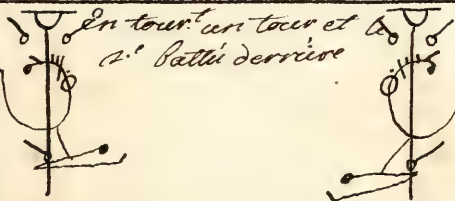 en tour.t un tour et a
battu derriere